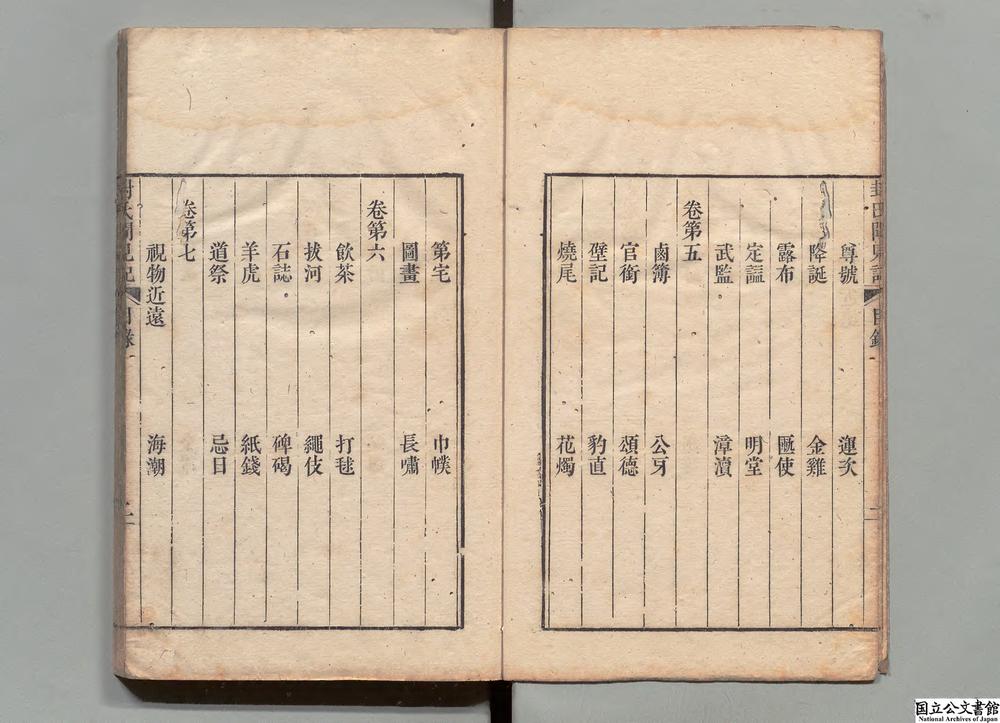 封氏聞見記 目錄 二
尊號 運次
降誕 金雞
露布 匭使
定諡 明堂
武監 漳瀆
卷第五
鹵簿 公牙
官銜 頌德
壁記 豹直
燒尾 花燭
第宅 巾幞
圖畫 長嘯
卷第六
飲茶 打毬
拔河 繩伎
石誌 碑碣
羊虎 紙錢
道祭 忌日
卷第七
視物近遠 海潮
封氏聞見記 目錄 二
国立公文書館
National Archives of Japan